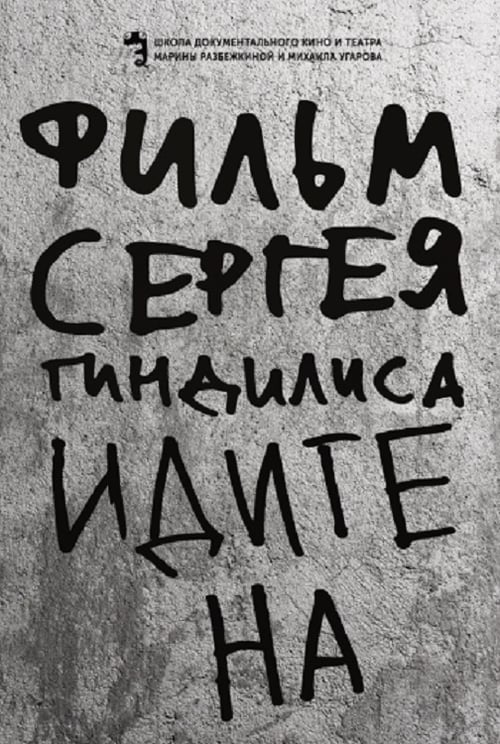 ШКОЛА ДОКУМЕНТАЛЬНОГО КИНО И ТЕАТРА
МАРИНЫ РАЗБЕЖКИНОЙ И МИХАИЛА УГАРОВА
ФИЛЬМ
СЕРГЕЯ
ГИНДИЛИСА
ИДИТЕ
НА